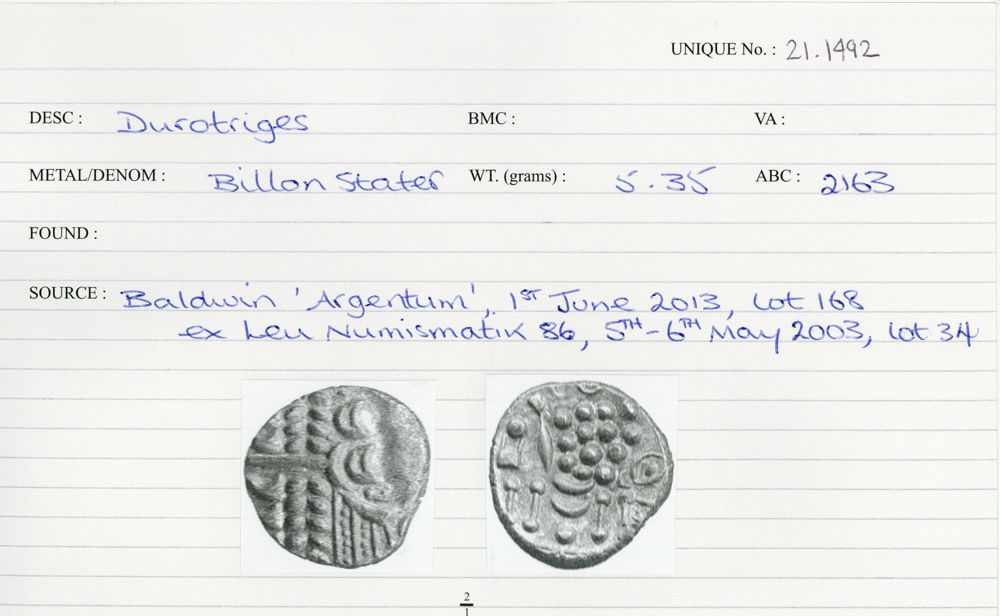 UNIQUE No. : 21.1492
DESC : Durotriges BMC : VA :
METAL/DENOM : Billon Stater WT. (grams) : 5.35 ABC : 2163
FOUND :
SOURCE : Baldwin 'Argentum', 1ST June 2013, Lot 168
ex Leu Numismatik 86, 5TH-6TH May 2003, lot 34
2
1